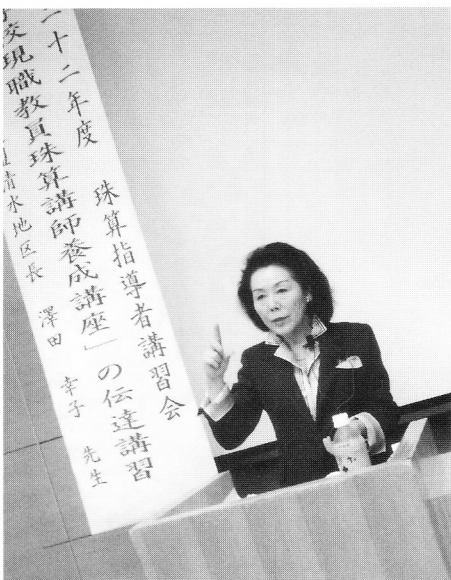 二十二年度 珠算指導者講習会
校現職教員珠算講師養成講座」の伝達講習
清水地区長 澤田 幸子 先生